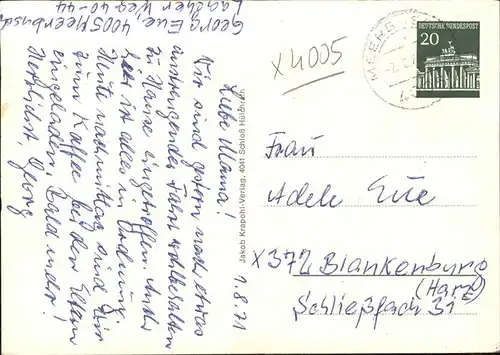 Georg Eue, 4005 Meerbusch
Laacher Weg 40-44
1.8.71
Liebe Mama!
Wir sind gestern nach etwas
anstrengender Fahrt wohlbehalten
zu Hause eingetroffen. Auch
hier ist alles in Ordnung.
Heute nachmittag sind wir
zum Kaffee bei den Eltern
eingeladen. Bald mehr!
Herzlichst, Georg
Jakob Krapohl-Verlag, 4041 Schloß Hülchrath
X4005
MEERBUSCH
DEUTSCHE BUNDESPOST
20
Frau
Adele Eue
X372 Blankenburg
(Harz)
Schließfach 31